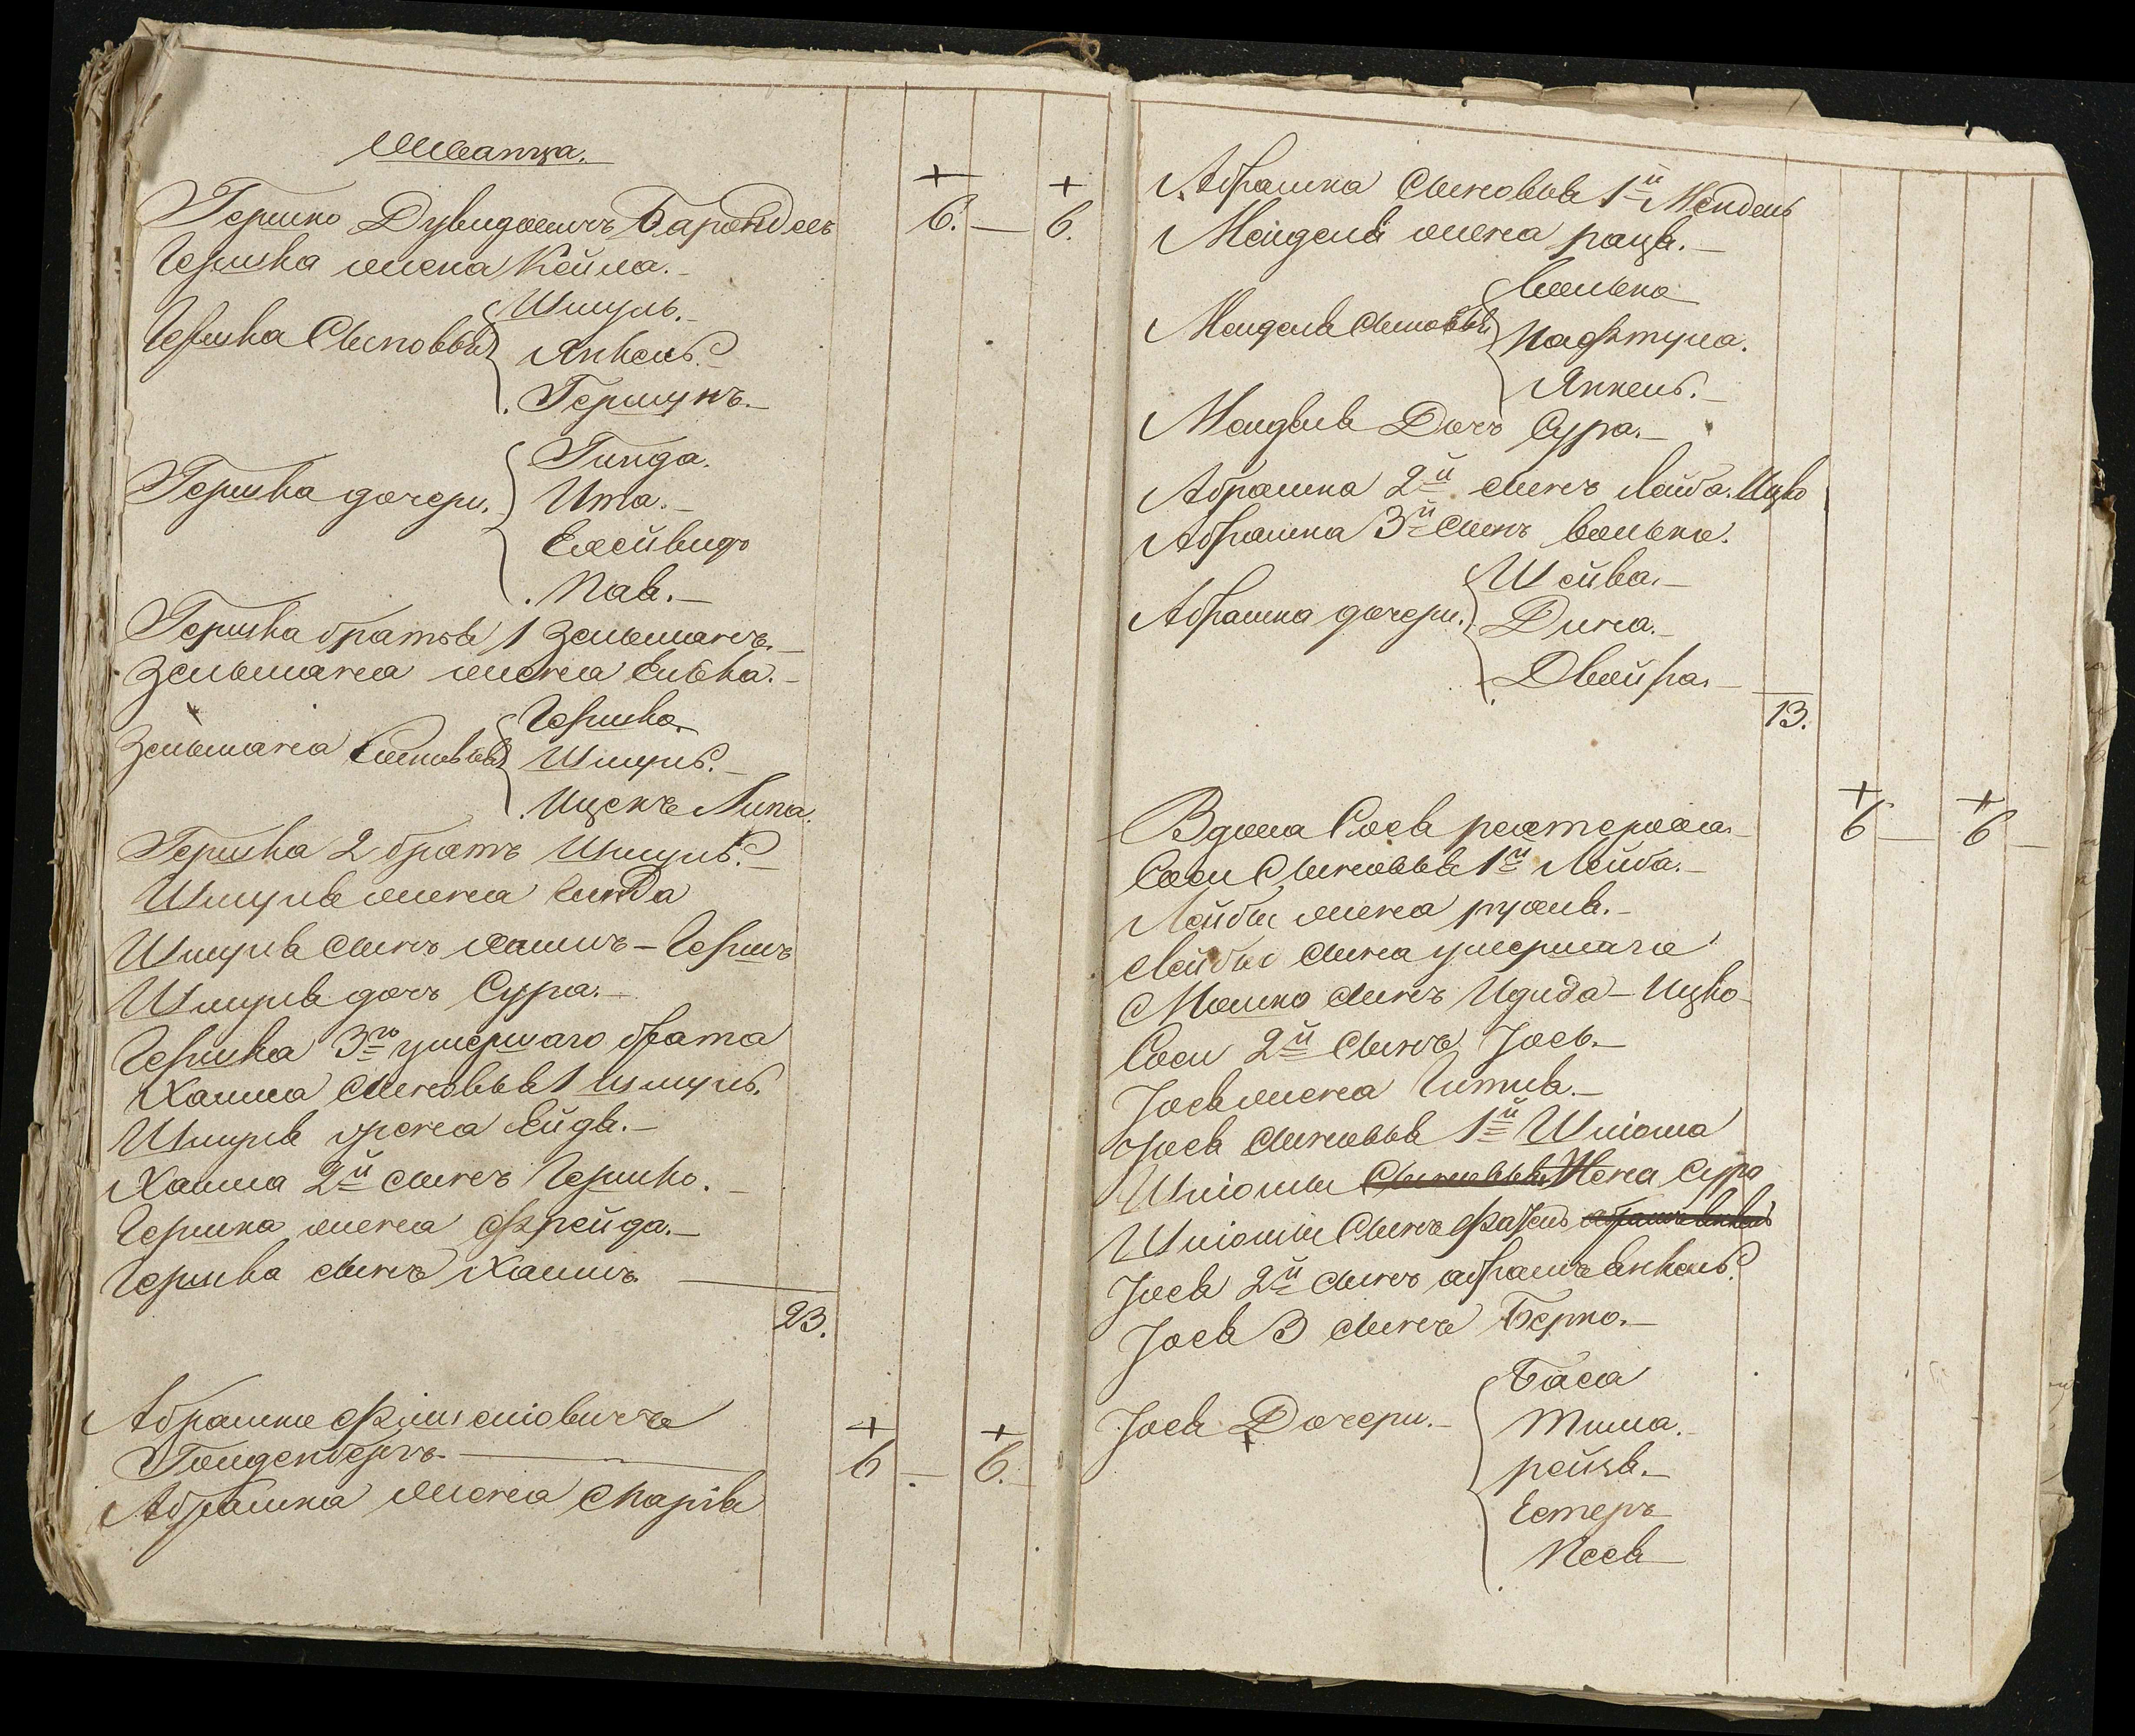 Гершко Дувидовичъ Барендель + 6. — + 6.
Гершка жена Кейла. —
Гершка Сыновья Шмуль. —
Янкель. —
Гершунъ. —
Гершка дочери. Гинда.
Ита. —
Гершка братья 1 Зельманъ. —
Зельмана жена
Зельмана Сыновья Гершко.
Шмуль. —
Ицекъ Липа.
Гершка 2 братъ Шмуль. —
Шмуля жена
Шмуля сынъ Хаимъ — Гершъ
Шмуля дочь Сура. —
Гершка 3го умершаго брата
Хаима сыновья 1 Шмуль.
Шмуля жена
Хаима 2й сынъ Гершко. —
Гершка жена Фрейда. —
Гершка сынъ Хаимъ. —
23.
Абрамко
Абрамка жена + 6 — + 6. —
Абрамка Сыновья 1й Мендель
Менделя жена —
Менделя сыновья Волько
Янкель. —
Менделя Дочь Сура. —
Абрамка 2й сынъ Лейба. Ицко
Абрамка 3й Сынъ Волько.
Абрамка дочери. Шейва. —
Дина. —
Двейра. —
13.
Вдова Сося + 6 — + 6 —
Соси Сыновья 1й Лейба. —
Лейбы жена —
Лейбы сына умершаго
Мошко сынъ — Ицко
Соси 2й Сынъ Іось. —
Іося жена Гитля. —
Іося сыновья 1й Шліома
Шліомы Сыновья Жена Сура
Шліомы Сынъ
Іося 2й сынъ Абрамъ Янкель. —
Іося 3 сынъ Берко. —
Іося Дочери. — Баса
рейзя. —
Естеръ
Песя —